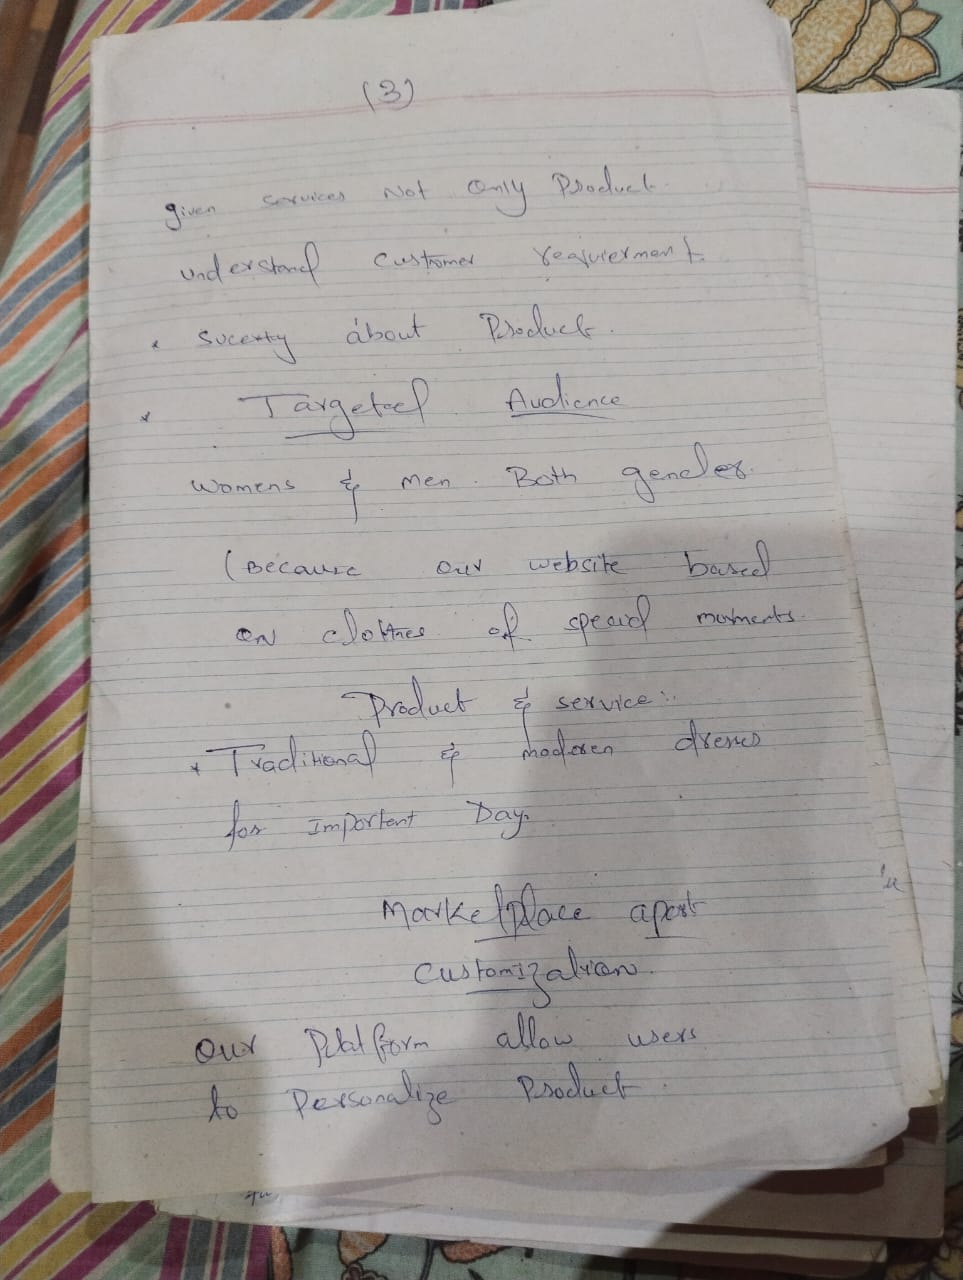 (3)
given services Not Only Product
understand customer requierment.
* Sucerty about Product.
* Targeted Audience
Womens & men. Both gender.
(Because our website based
on clothes of special moments.
Product & service:
* Traditional & moderen dresses
for Important Day.
Marketplace apart
Customization.
Our Platform allow users
to Personalize Product.